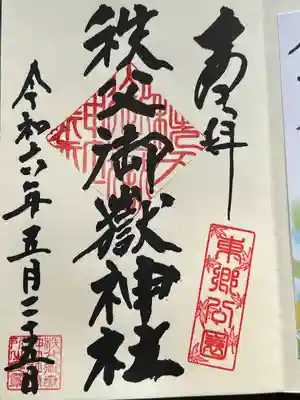 奉拝
東郷公園
秩父御嶽神社
令和六年五月二十五日